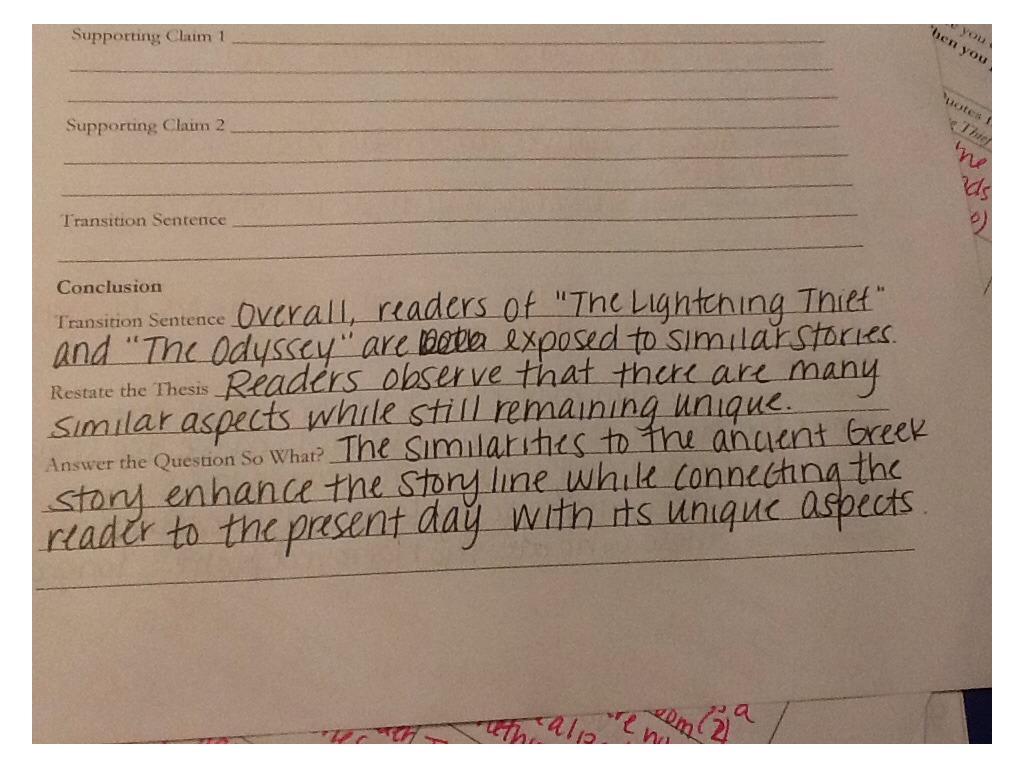 Supporting Claim 1
Supporting Claim 2
Transition Sentence
Conclusion
Transition Sentence Overall, readers of "The Lightching Thief"
and "The Odyssey" are exposed to similar stories.
Restate the Thesis Readers observe that there are many
similar aspects while still remaining unique.
Answer the Question So What? The similarities to the ancient Greek
story enhance the story line while connecting the
reader to the present day with its unique aspects.
you
hen you
uotes
Thief